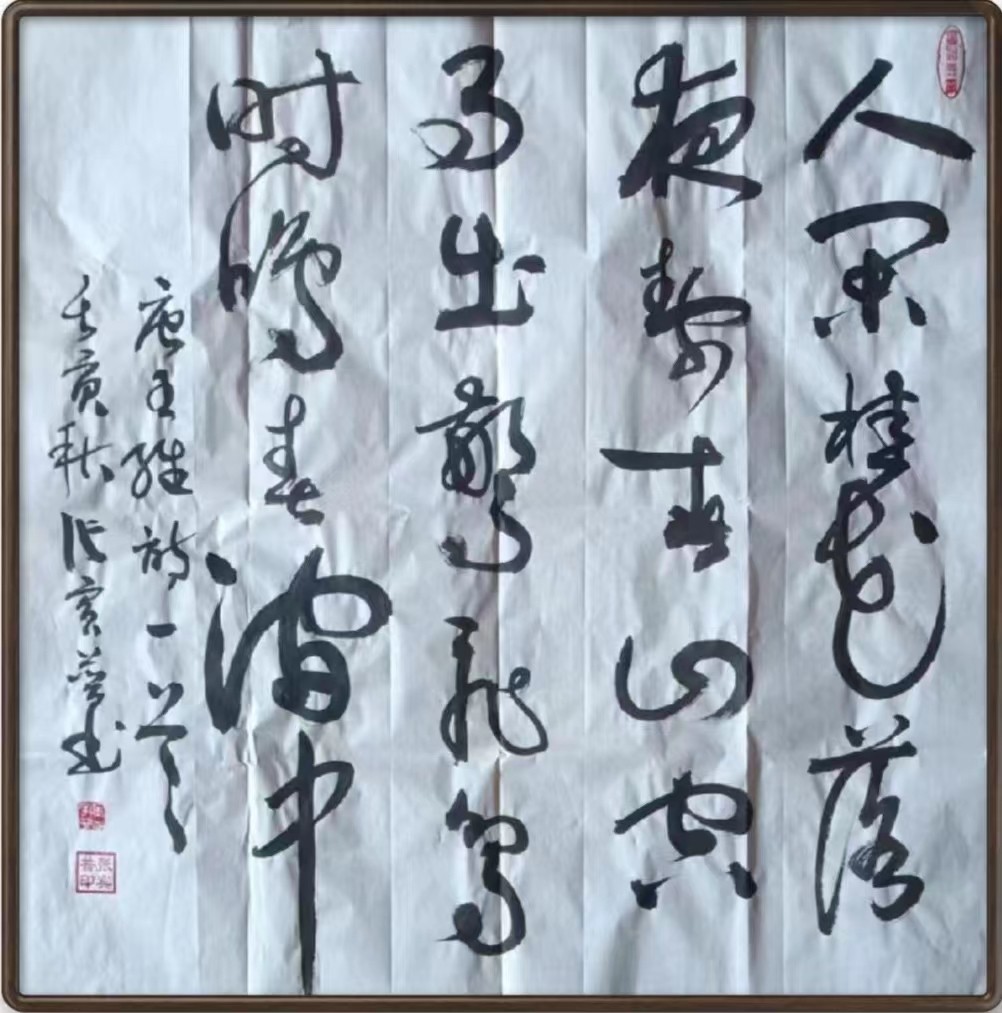 人闲桂花落
夜静春山空
月出驚飞鸟
时鸣春涧中
唐王维诗一首
壬寅秋张普书